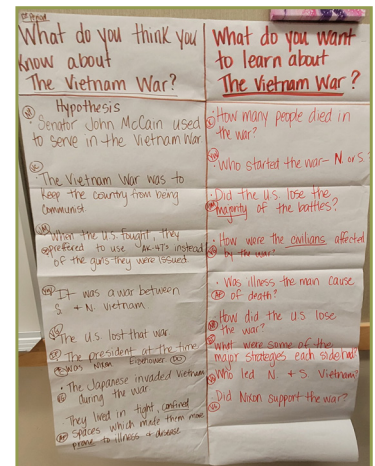 Period
What do you think you
know about
The Vietnam War?
Hypothesis
· Senator John McCain used
to serve in the Vietnam War
· The Vietnam War was to
keep the country from being
communist.
· When the U.S. fought, they
preferred to use "AK-47s" instead
of the guns they were issued.
· It was a war between
S. + N. Vietnam
· The U.S. lost that war
· The president at the time
was Nixon Eisenhower
· The Japanese invaded Vietnam
during the war
· They lived in tight, confined
spaces which made them more
prone to illness + disease.
What do you want
to learn about
The Vietnam War?
· How many people died in
the war?
· Who started the war- N. or S.
· Did the U.S. lose the
majority of the battles?
· How were the civilians affected
by the war?
· Was illness the main cause
of death?
· How did the U.S. lose
the war?
· What were some of the
major strategies each side had?
· Who led N. + S. Vietnam?
· Did Nixon support the war?